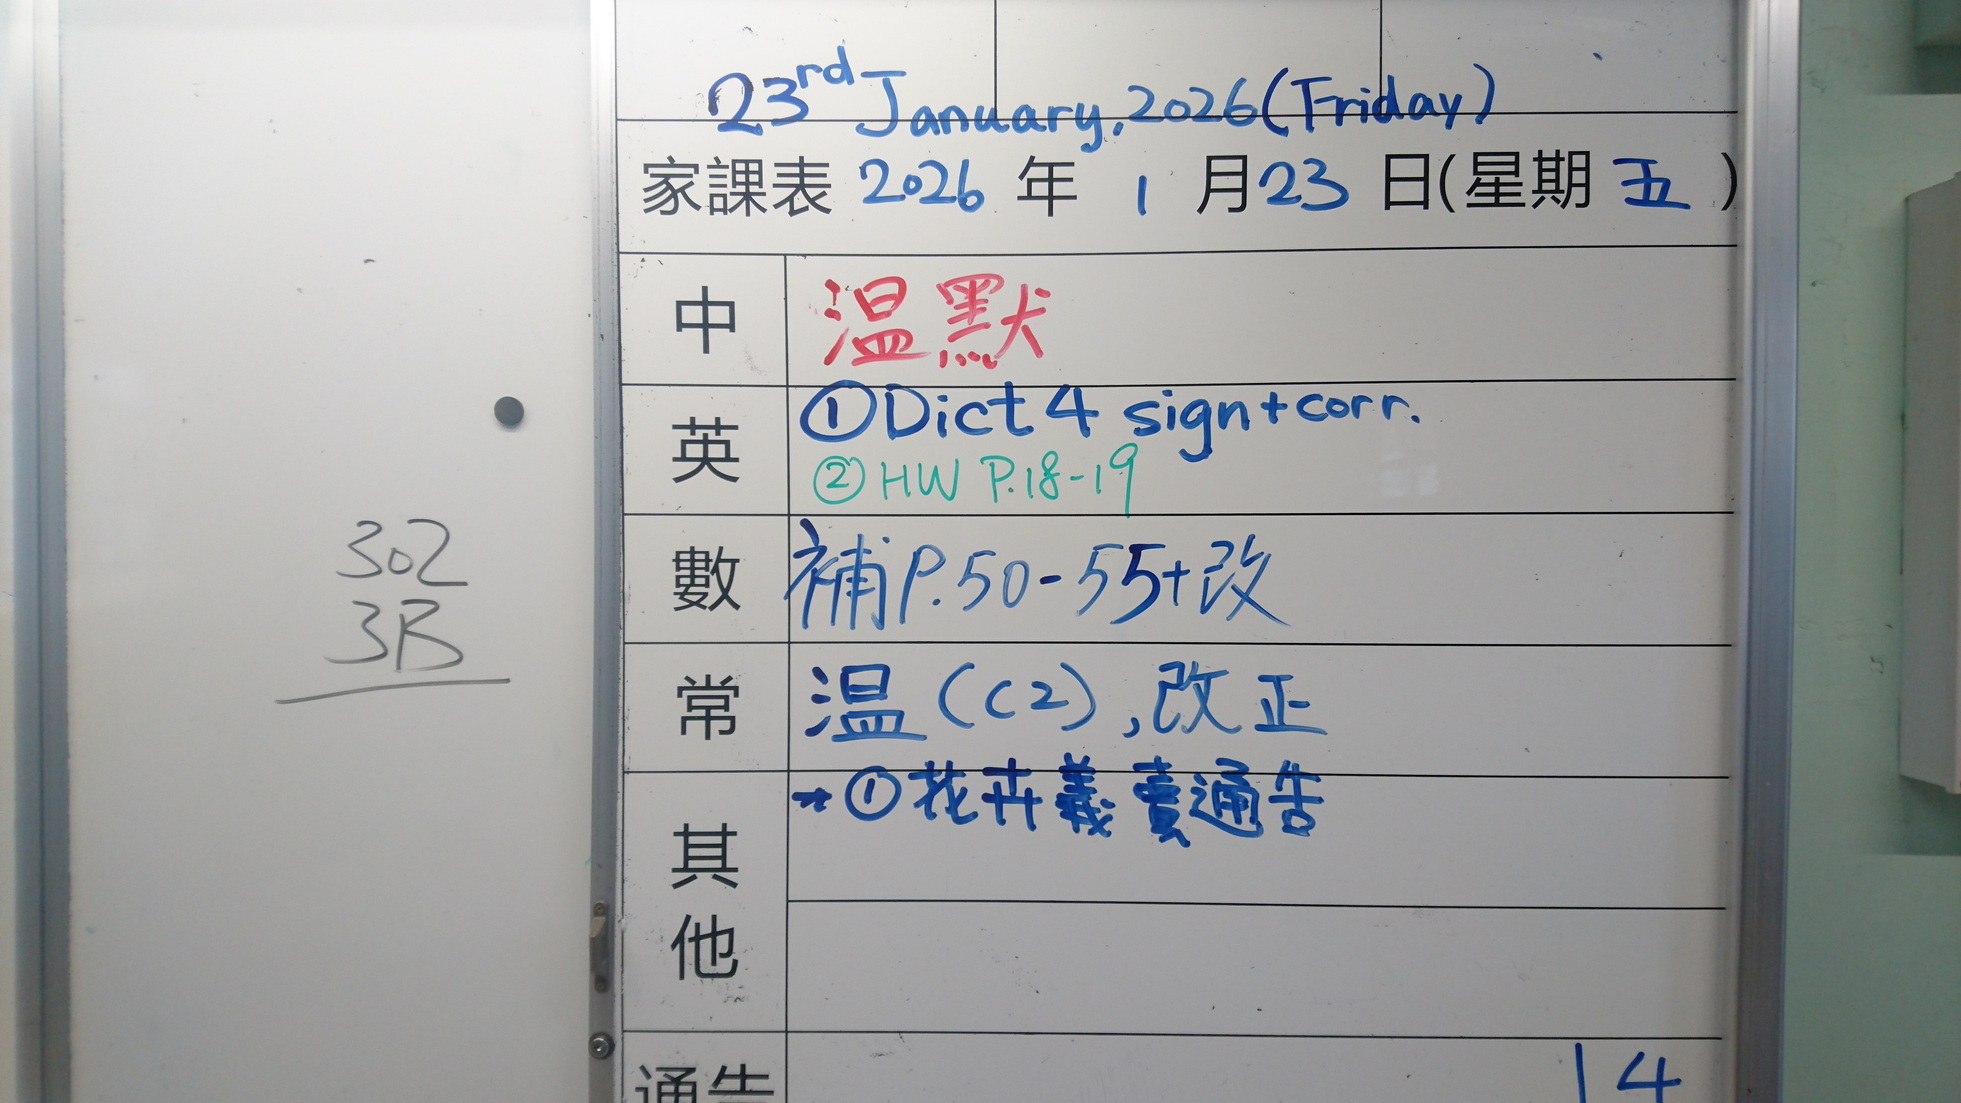 302
3B
23rd January, 2026 (Friday)
家課表 2026 年 1 月 23 日(星期 五 )
中 温默
英 ①Dict 4 sign+corr.
②HW P.18-19
數 補P.50-55+改
常 温(C2),改正
其他 →①花卉義賣通告
通告 14